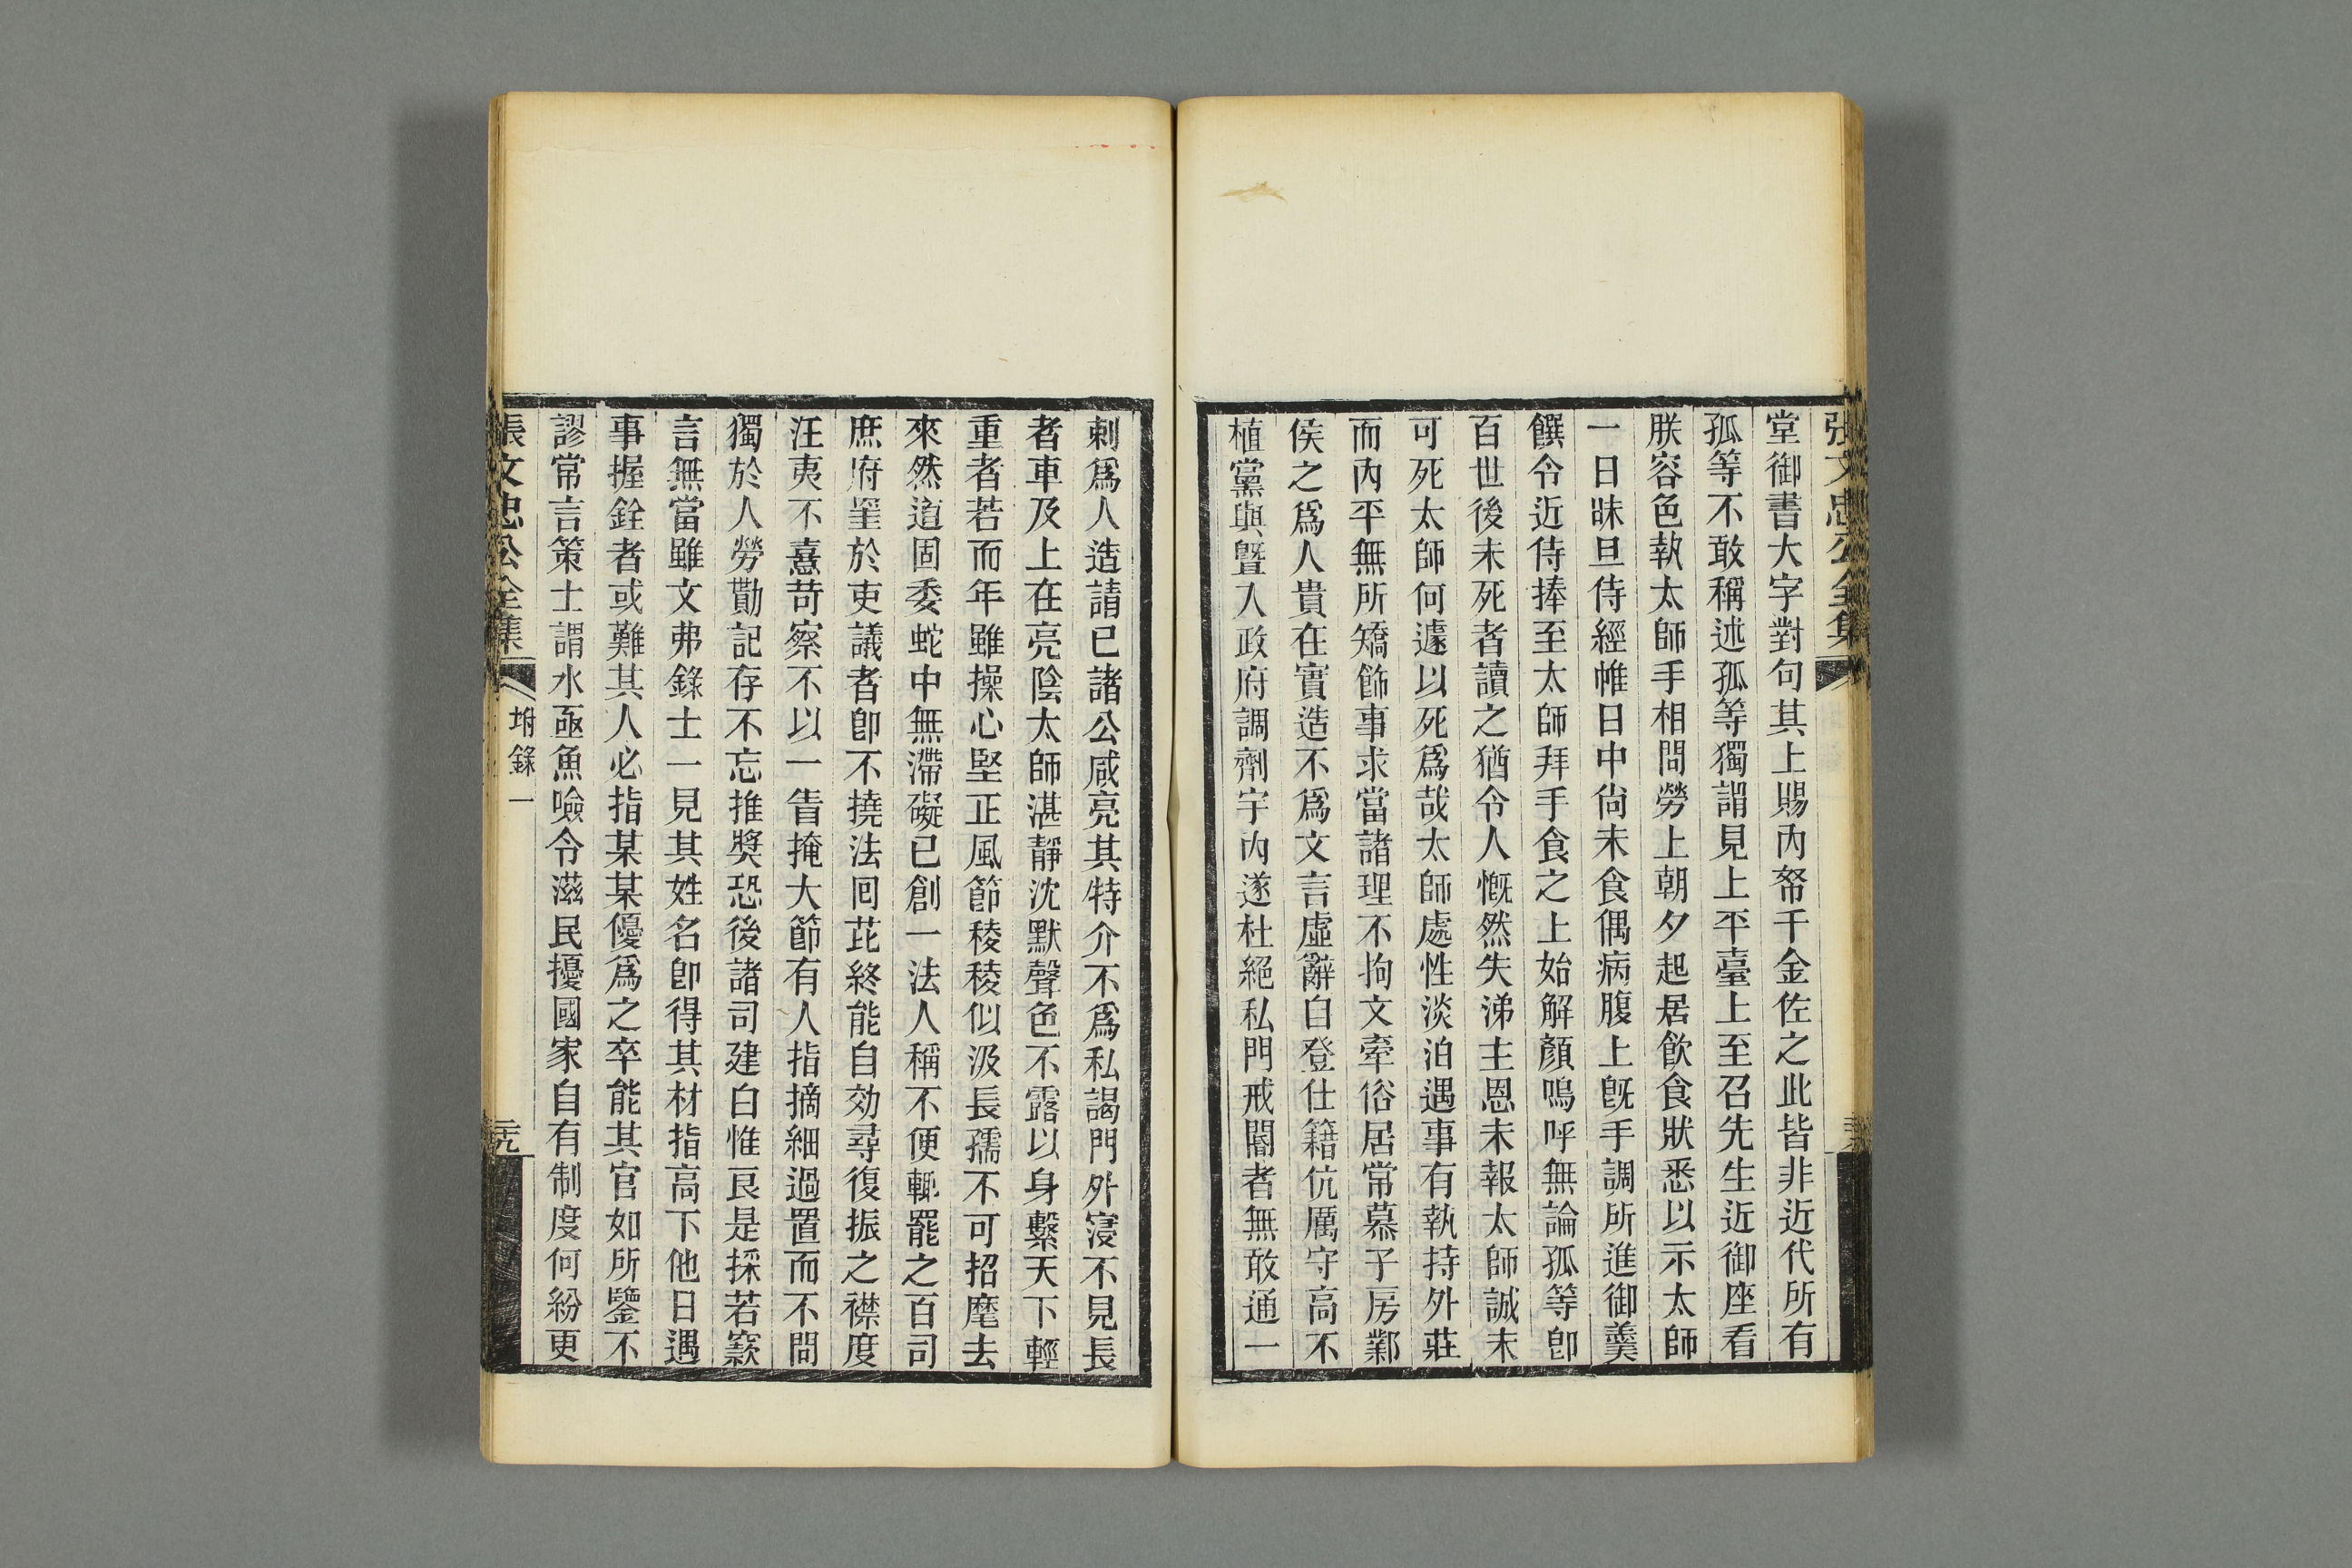 張文忠公全集
堂御書大字對句其上賜內帑千金佐之此皆非近代所有
孤等不敢稱述孤等獨謂見上平臺上至召先生近御座看
朕容色執太師手相問勞上朝夕起居飲食狀悉以示太師
一日昧旦侍經帷日中尙未食偶病腹上旣手調所進御羹
饌令近侍捧至太師拜手食之上始解顏嗚呼無論孤等卽
百世後未死者讀之猶令人慨然失涕主恩未報太師誠未
可死太師何遽以死爲哉太師處性淡泊遇事有執持外莊
而內平無所矯飾事求當諸理不拘文牽俗居常慕子房鄴
侯之爲人貴在實造不爲文言虛辭自登仕籍伉厲守高不
植黨與曁入政府調劑宇內遂杜絕私門戒閽者無敢通一
剌爲人造請已諸公咸亮其特介不爲私謁門外寖不見長
者車及上在亮陰太師湛靜沈默聲色不露以身繫天下輕
重者若而年雖操心堅正風節稜稜似汲長孺不可招麾去
來然道固委蛇中無滯礙已創一法人稱不便輒罷之百司
庶府罣於吏議者卽不撓法囘芘終能自効尋復振之襟度
汪夷不憙苛察不以一眚掩大節有人指摘細過置而不問
獨於人勞勩記存不忘推獎恐後諸司建白惟良是採若窾
言無當雖文弗錄士一見其姓名卽得其材指高下他日遇
事握銓者或難其人必指某某優爲之卒能其官如所鑒不
謬常言策士謂水亟魚噞令滋民擾國家自有制度何紛更
張文忠公全集
坿錄一
元